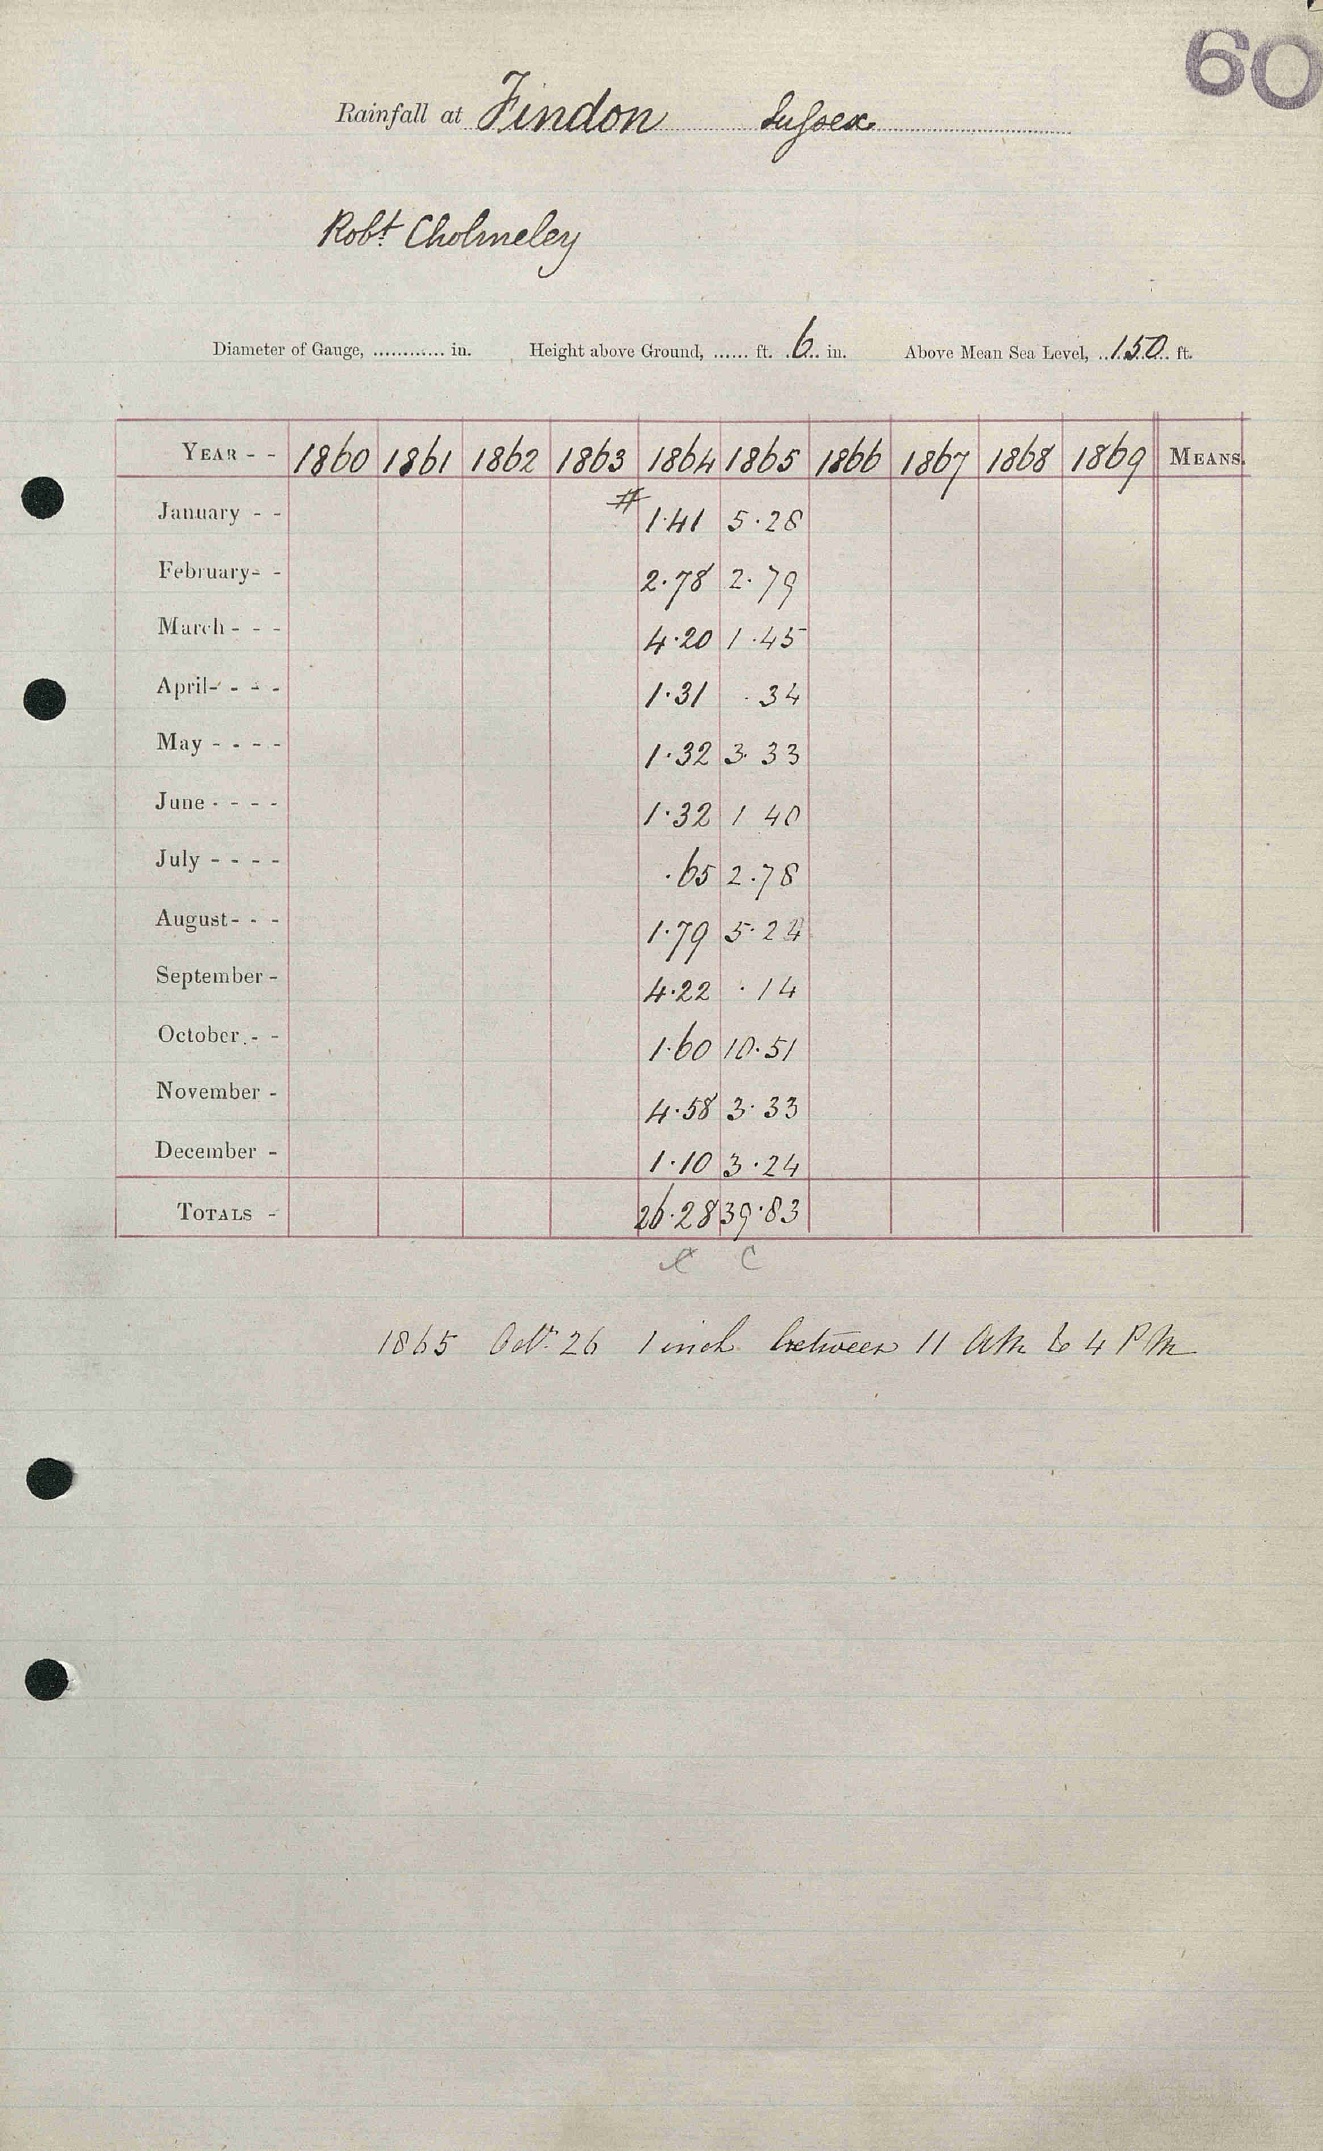 60
Rainfall at Findon Sussex
Robt. Cholmeley
Diameter of Gauge, ............ in. Height above Ground, ...... ft. 6 in. Above Mean Sea Level, 150 ft.
YEAR - - 1860 1861 1862 1863 1864 1865 1866 1867 1868 1869 MEANS.
January - - # 1.41 5.28
February - - 2.78 2.79
March - - - 4.20 1.45
April - - - - 1.31 .34
May - - - - 1.32 3.33
June - - - - 1.32 1 40
July - - - - .65 2.78
August - - - 1.79 5.24
September - 4.22 .14
October - - 1.60 10.51
November - 4.58 3.33
December - 1.10 3.24
TOTALS - 26.28 39.83
C
1865 Octr. 26 1 inch between 11 AM to 4 PM